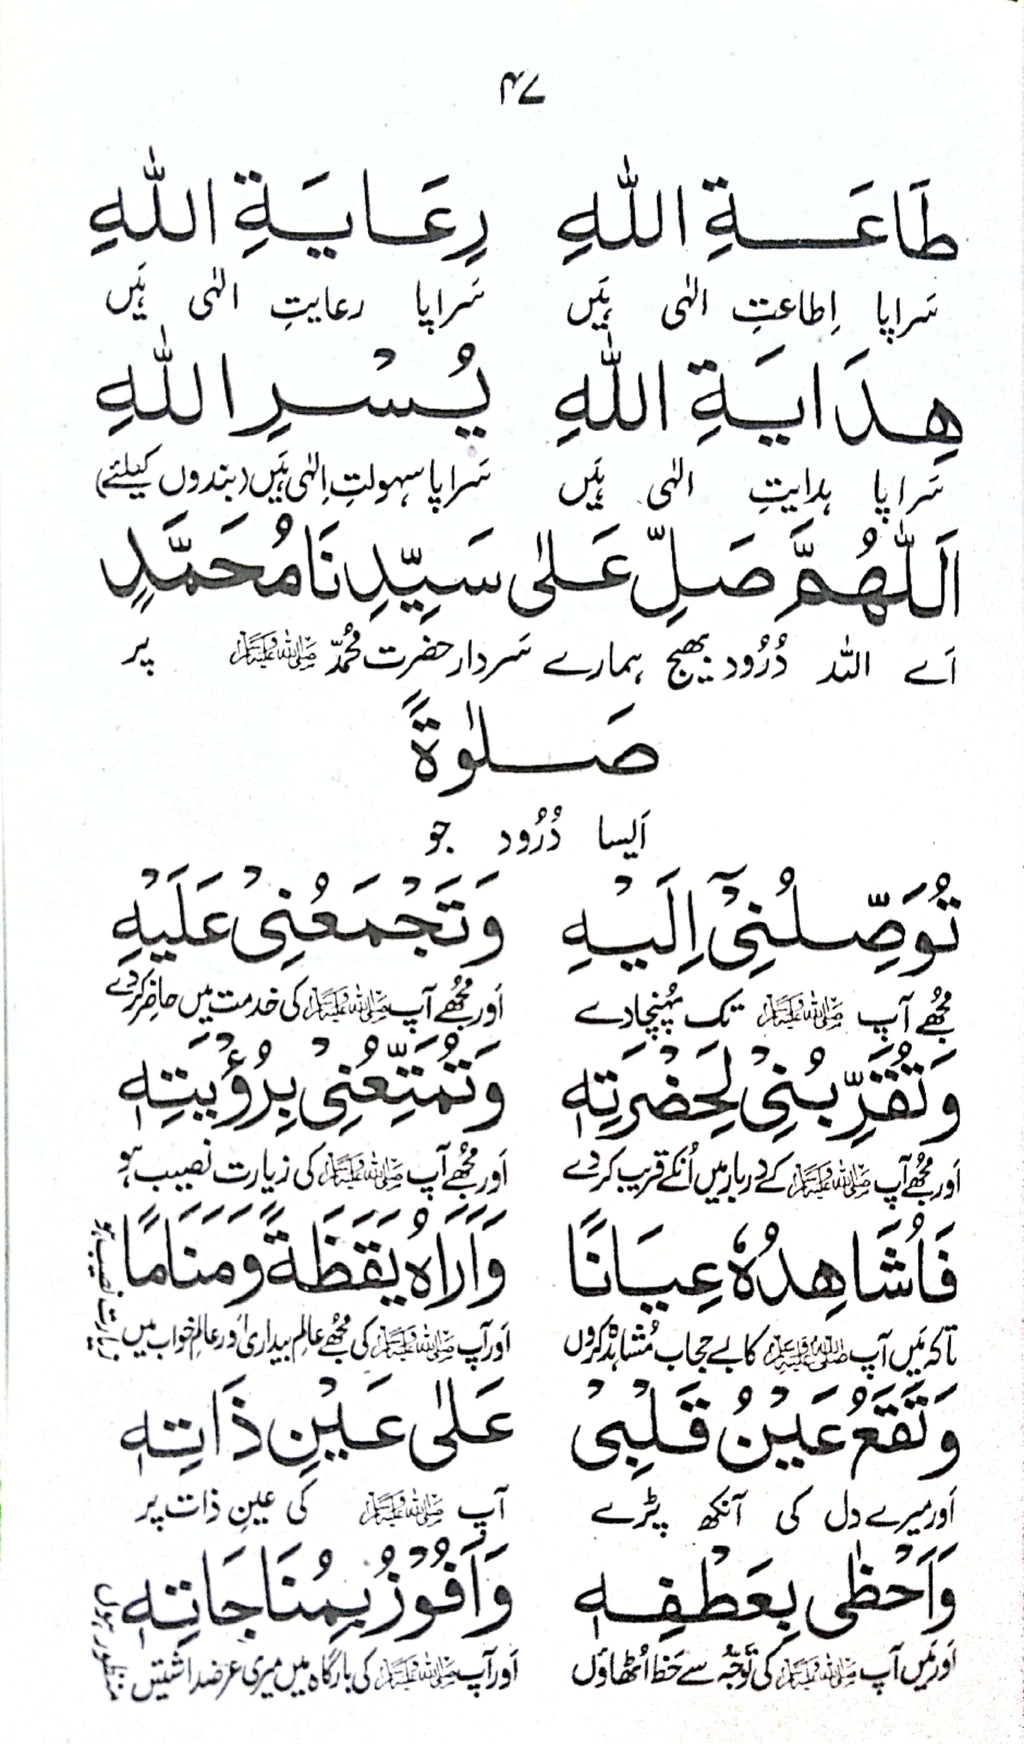 ۴۷
طَاعَةِ اللّٰهِ رِعَايَةِ اللّٰهِ
سَراپا اِطاعتِ الٰہی ہَیں سَراپا رعایتِ الٰہی ہَیں
هِدَايَةِ اللّٰهِ يُسْرِ اللّٰهِ
سَراپا ہدایتِ الٰہی ہَیں سَراپا سہولتِ اِلٰہی ہَیں (بندوں کیلئے)
اَللّٰهُمَّ صَلِّ عَلٰى سَيِّدِنَا مُحَمَّدٍ
اَے اللہ دُرُود بھیج ہمارے سَردار حضرت مُحمّد ﷺ پر
صَلٰوةً
اَیسا دُرُود جو
تُوَصِّلُنِىْٓ اِلَيْهِ وَتَجْمَعُنِىْ عَلَيْهِ
مُجھے آپ ﷺ تک پُہنچادے اَور مُجھے آپ ﷺ کی خدمت میں حاضِر کردے
وَتُقَرِّبُنِىْ لِحَضْرَتِهٖ وَتُمَتِّعُنِىْ بِرُؤْيَتِهٖ
اَور مُجھے آپ ﷺ کے دربار میں اُنکے قریب کردے اَور مُجھے آپ ﷺ کی زیارت نصیب ہو
فَاُشَاهِدُهٗ عِيَانًا وَاَرَاهُ يَقَظَةً وَمَنَامًا
تاکہ مَیں آپ ﷺ کا بے حجاب مُشاہدہ کروں اَور آپ ﷺ کی مُجھے عالمِ بیداری اَور عالمِ خواب میں زیارت نصیب ہو
وَتَقَعُ عَيْنُ قَلْبِىْ عَلٰى عَيْنِ ذَاتِهٖ
اَور میرے دل کی آنکھ پڑے آپ ﷺ کی عینِ ذات پر
وَاَحْظٰى بِعَطْفِهٖ وَاَفُوْزُ بِمُنَاجَاتِهٖ
اَور مَیں آپ ﷺ کی تَوَجّہ سے حَظ اُٹھاؤں اَور آپ ﷺ کی بارگاہ میں میری عرضداشتیں منظور ہوں